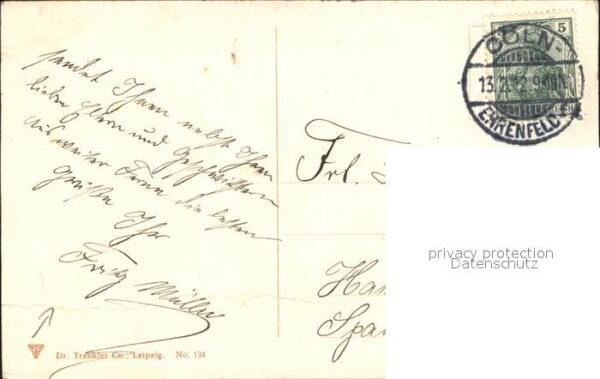 sendet Ihnen nebst Ihren
lieben Eltern und Geschwistern
aus weiter Ferne die besten
Grüße Ihr
Fritz Müller
Dr. Trenkler Co., Leipzig. No. 134
Frl.
Han
Spa
5
CÖLN-
13.2.12.9-10N
EHRENFELD
privacy protection
Datenschutz